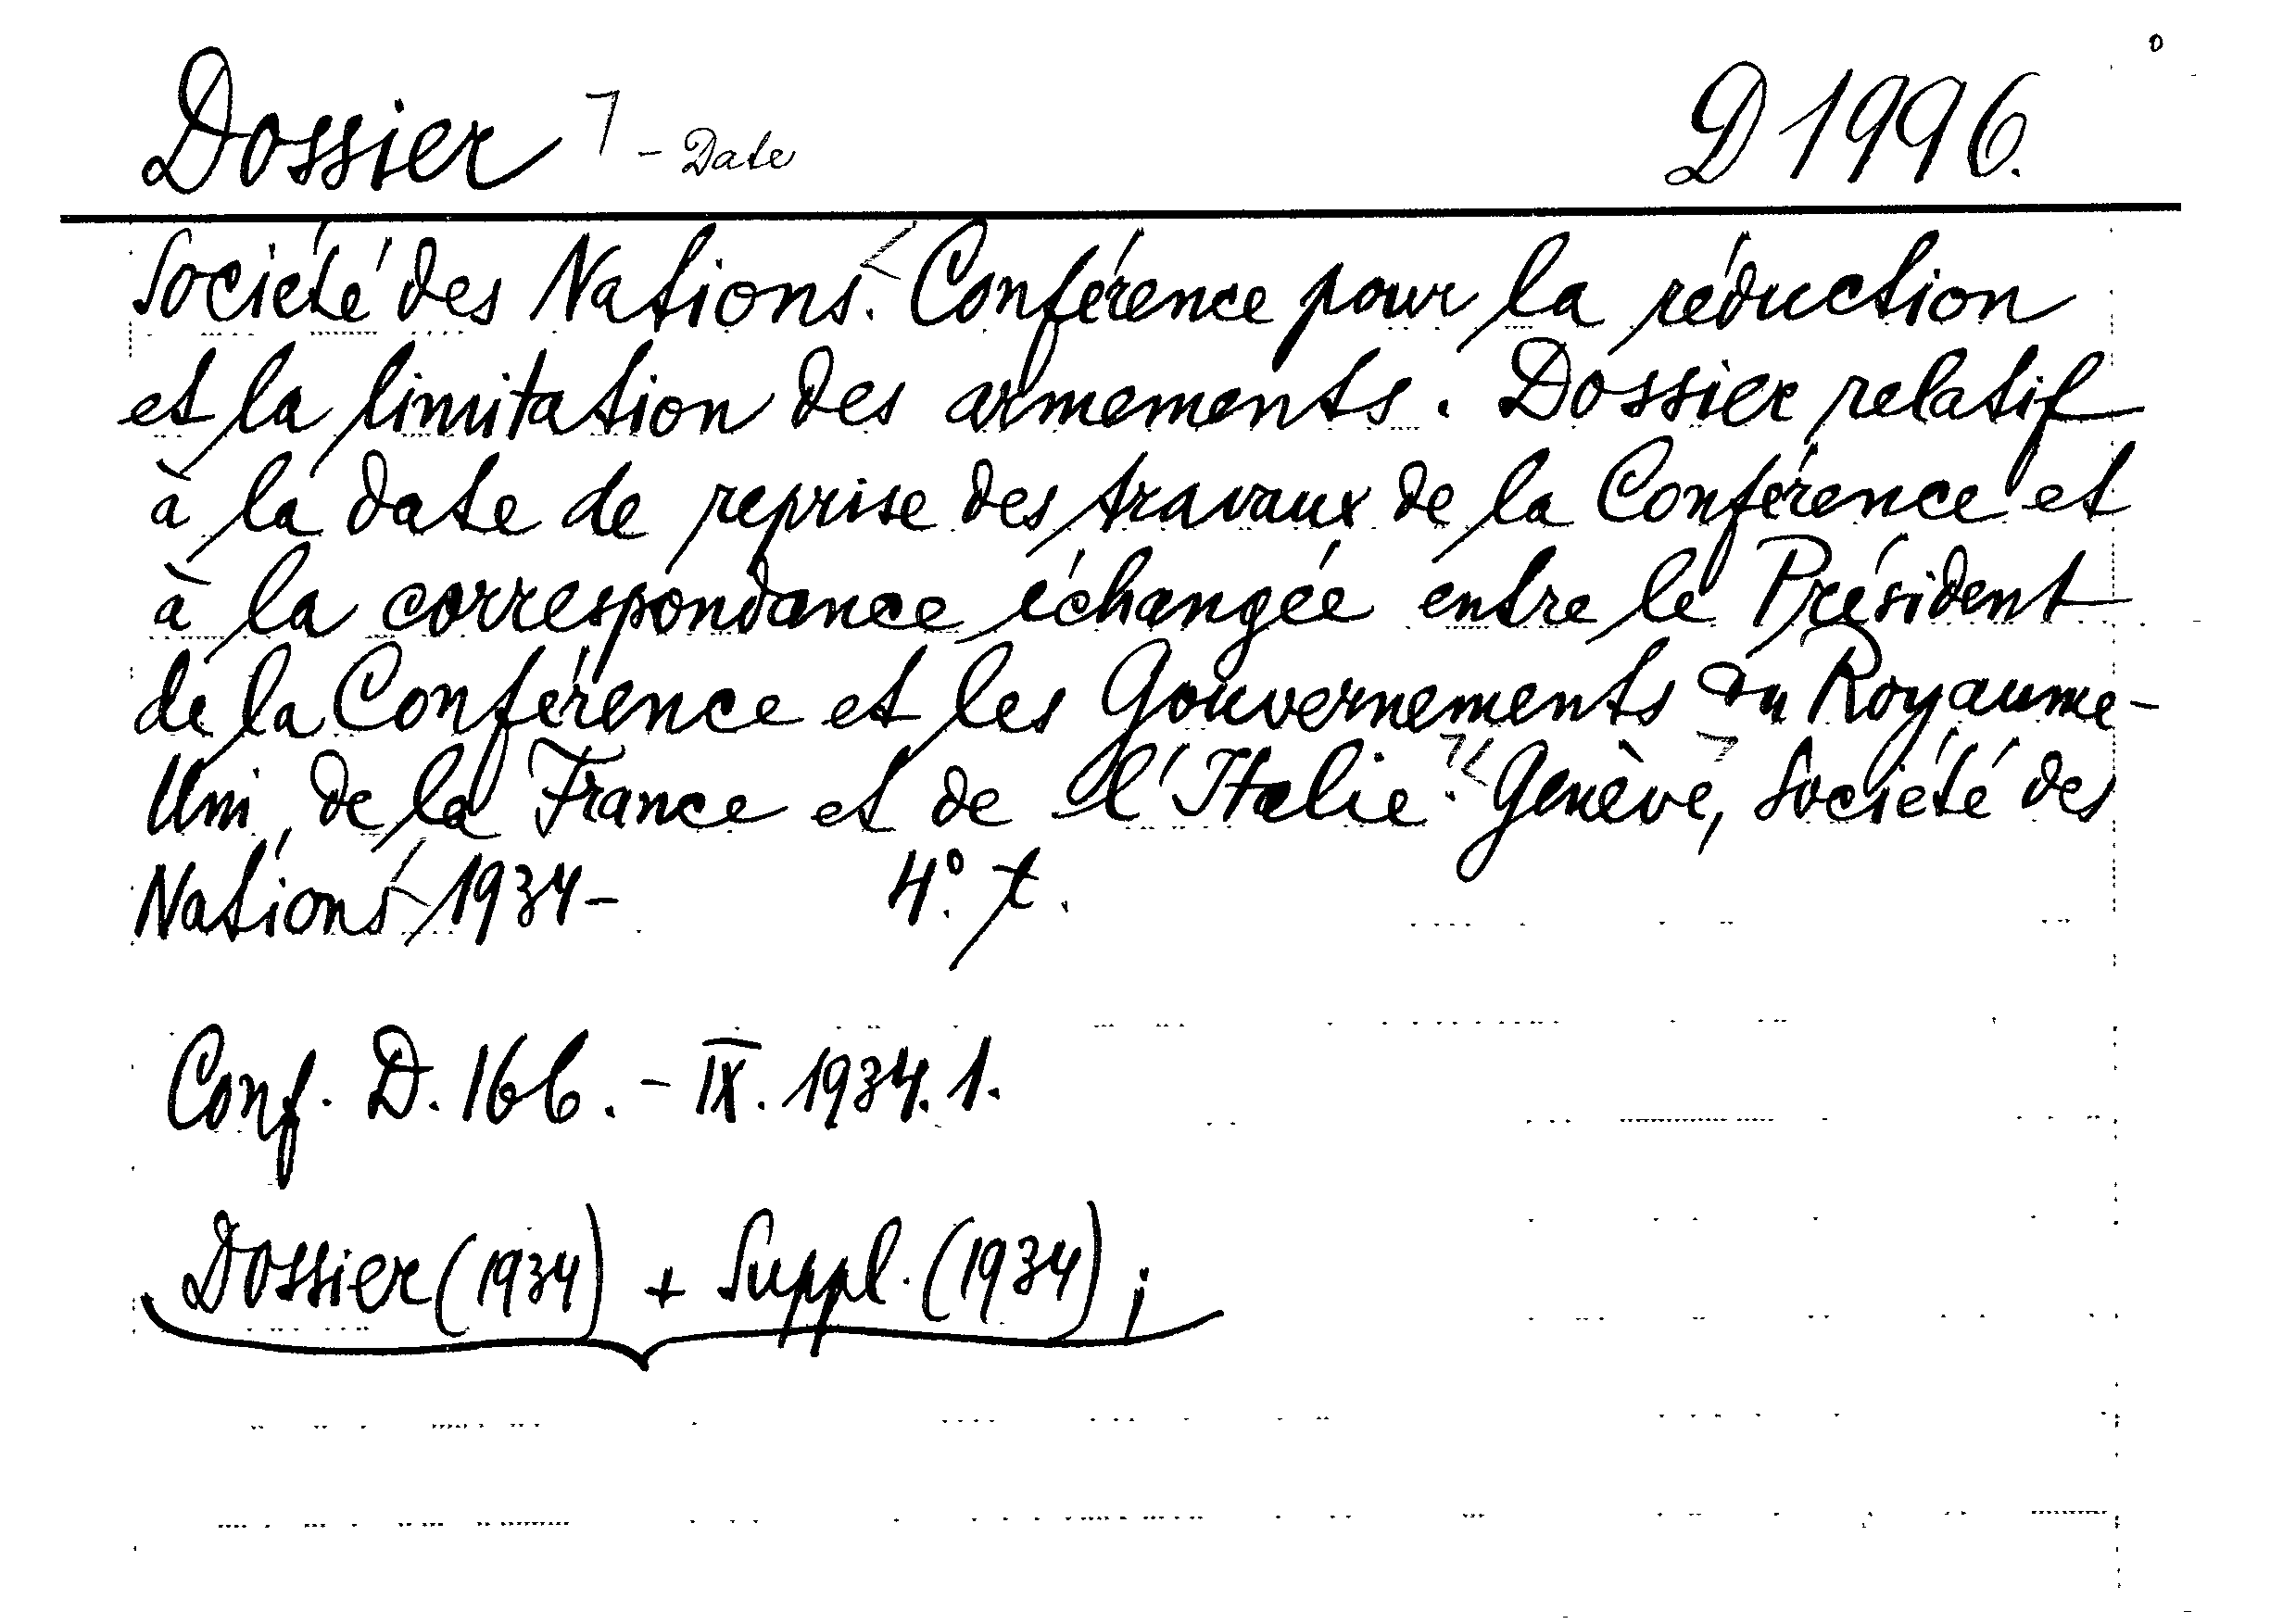 Dossier - Date D 1996.
Société des Nations. Conférence pour la réduction
et la limitation des armements. Dossier relatif
à la date de reprise des travaux de la Conférence et
à la correspondance échangée entre le Président
de la Conférence et les Gouvernements du Royaume-
Uni, de la France et de l'Italie. Genève, Société des
Nations 1934- 4°. t.
Conf. D. 166. - IX. 1934. 1.
Dossier (1934) + Suppl. (1934) ;